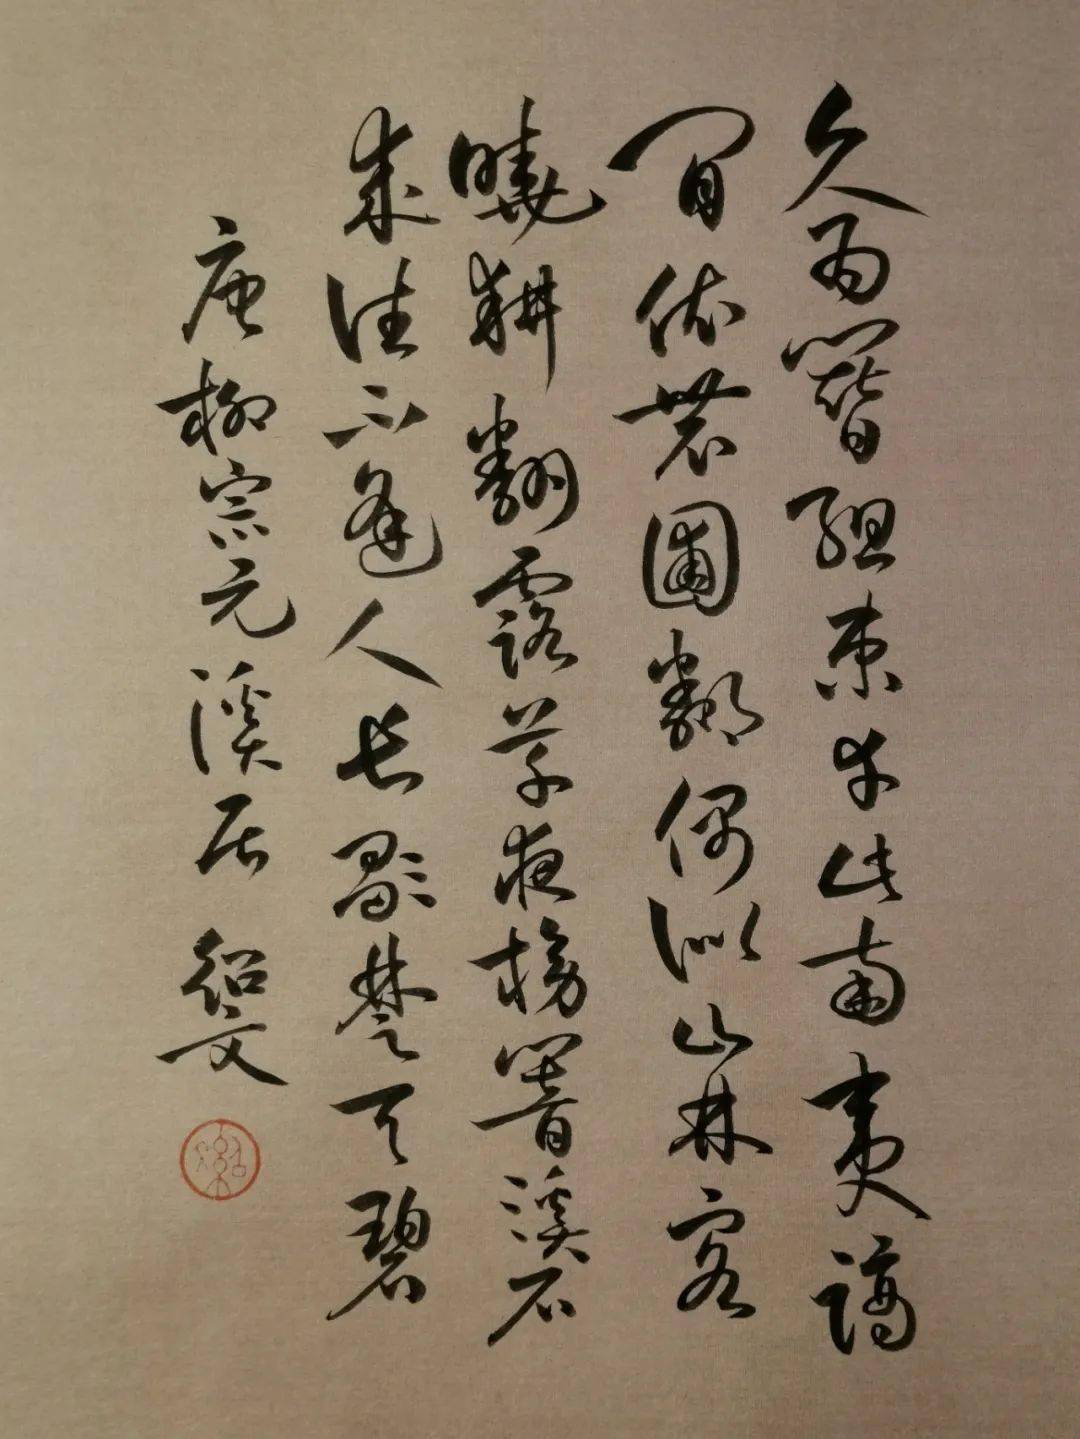 久為簪組束幸此南夷謫
閒依農圃鄰偶似山林客
曉耕翻露草夜榜響溪石
來往不逢人長歌楚天碧
唐柳宗元溪居 紹文